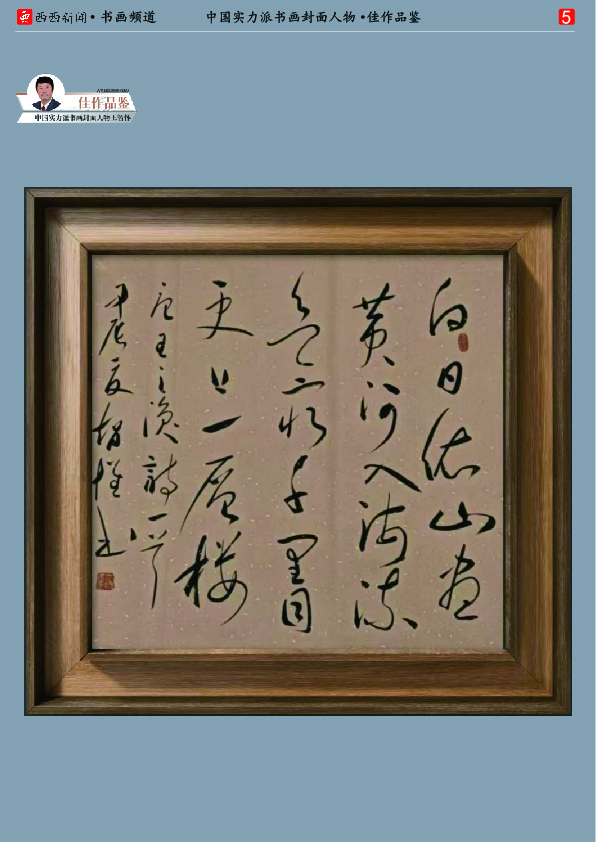 西西新闻·书画频道
中国实力派书画封面人物·佳作品鉴
5
佳作品鉴
中国实力派书画封面人物王智怀
白日依山盡
黄河入海流
欲窮千里目
更上一層楼
唐王之渙詩一首
甲辰夏智懷书